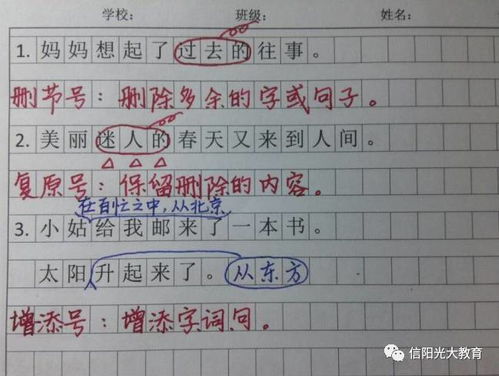 学校: 班级: 姓名:
1. 妈妈想起了过去的往事。
删节号：删除多余的字或句子。
2. 美丽迷人的春天又来到人间。
复原号：保留删除的内容。
在百忙之中，从北京
3. 小姑给我邮来了一本书。
太阳升起来了。 从东方
增添号：增添字词句。
信阳光大教育